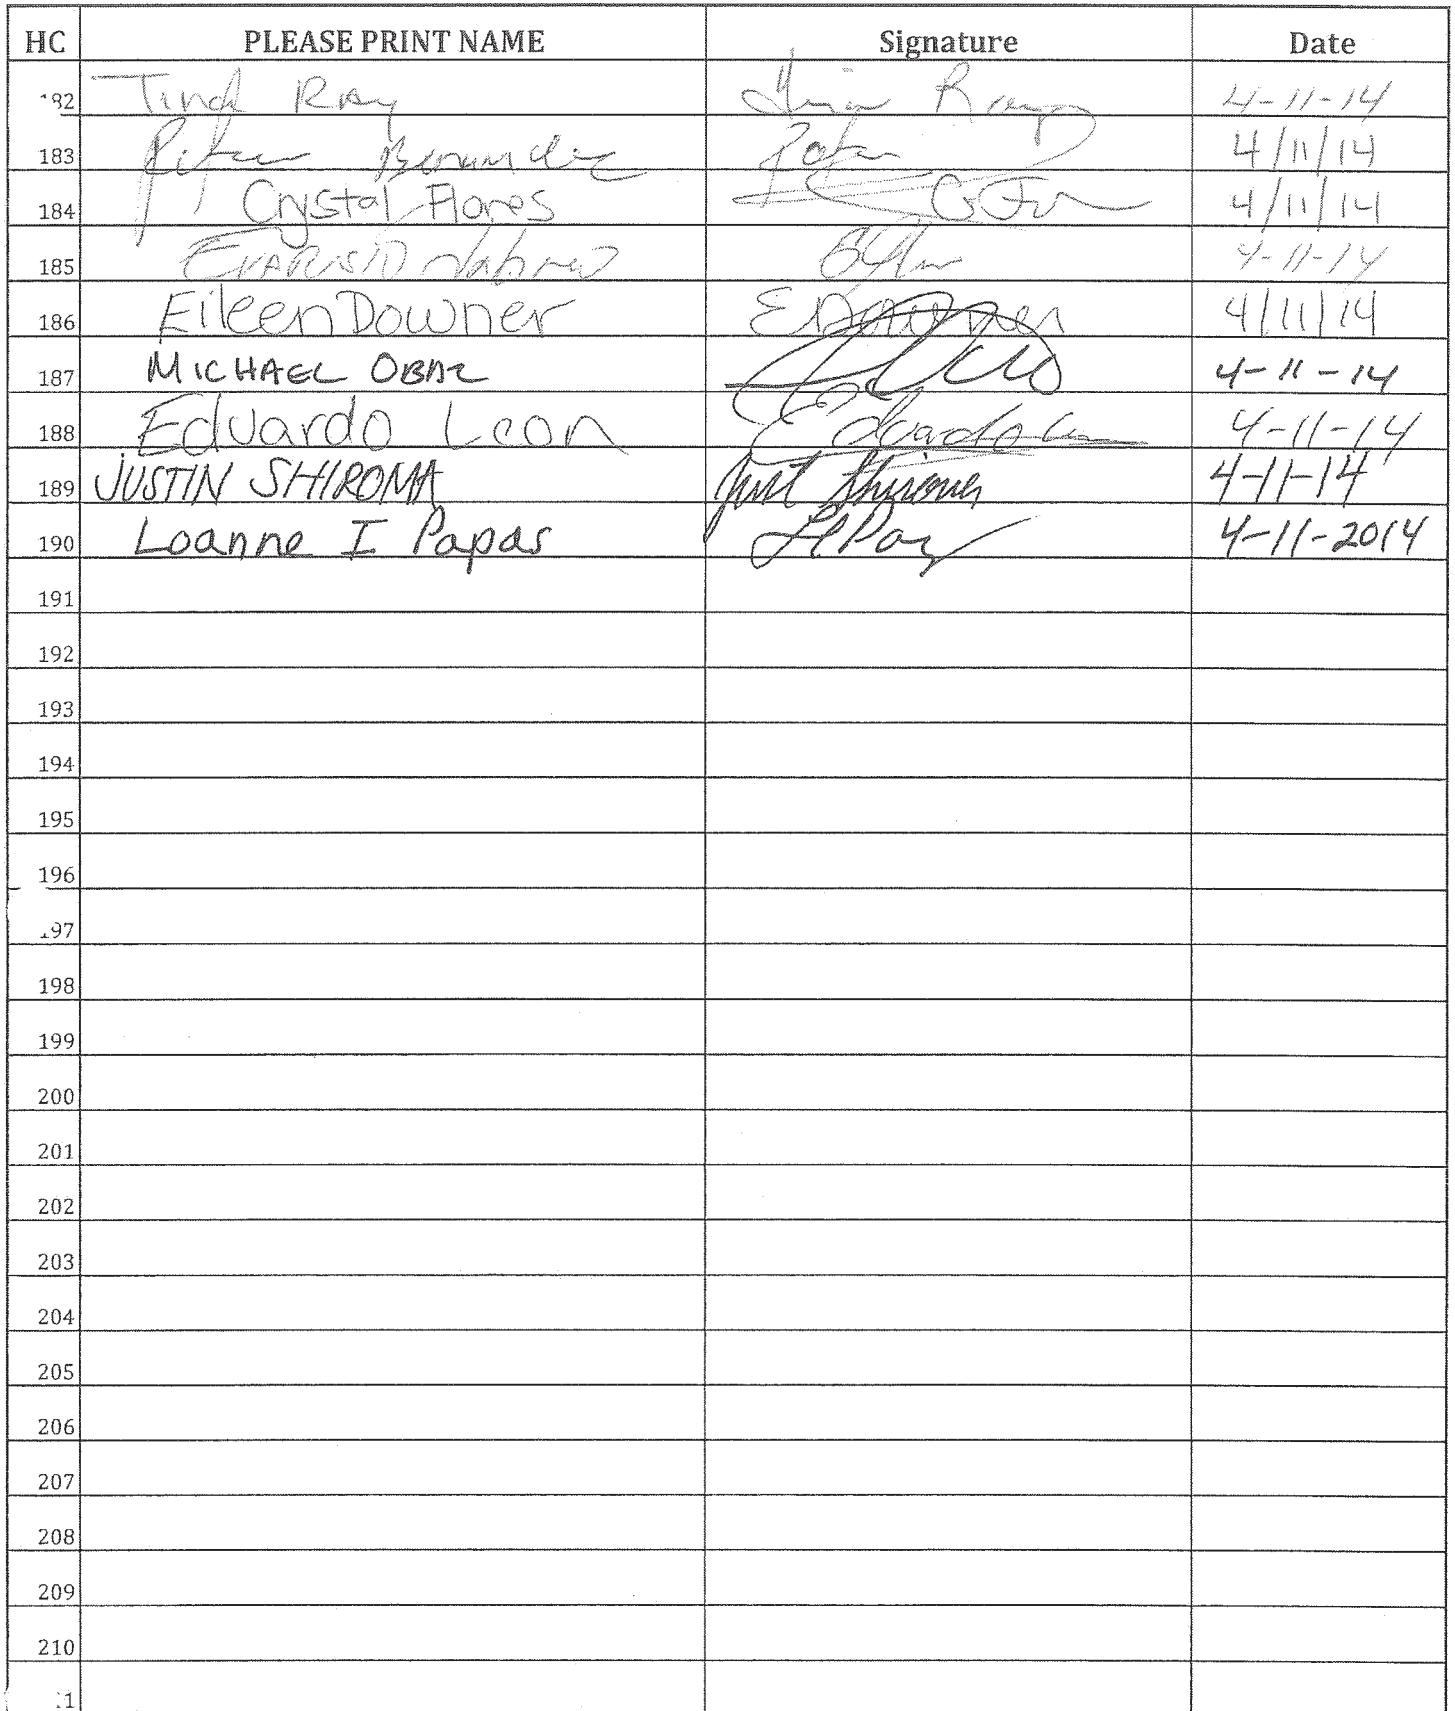 HC PLEASE PRINT NAME Signature Date
182 Tina Ray Tina Ray 4-11-14
183 4/11/14
184 Crystal Flores 4/11/14
185 4-11-14
186 Eileen Downer EDowner 4/11/14
187 MICHAEL 4-11-14
188 Eduardo Leon Eduardo 4-11-14
189 JUSTIN SHIROMA Just Shiroma 4-11-14
190 Loanne I Papas 4-11-2014
191
192
193
194
195
196
97
198
199
200
201
202
203
204
205
206
207
208
209
210
1